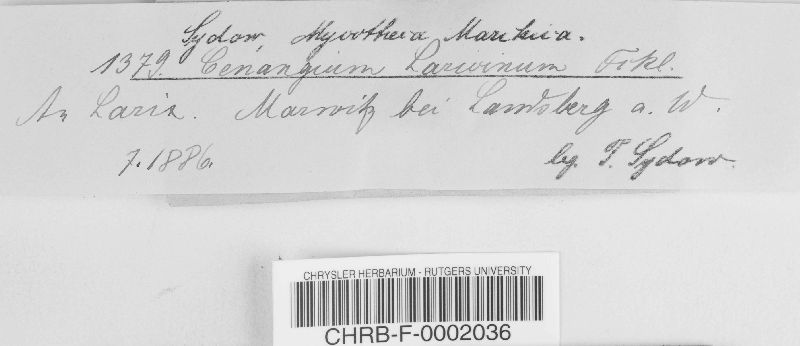 Sydow, Mycotheca Marchica.
1379. Cenangium Laricinum Fckl.
An Larix. Marwitz bei Landsberg a. W.
7.1886.
leg. P. Sydow.
CHRYSLER HERBARIUM - RUTGERS UNIVERSITY
CHRB-F-0002036